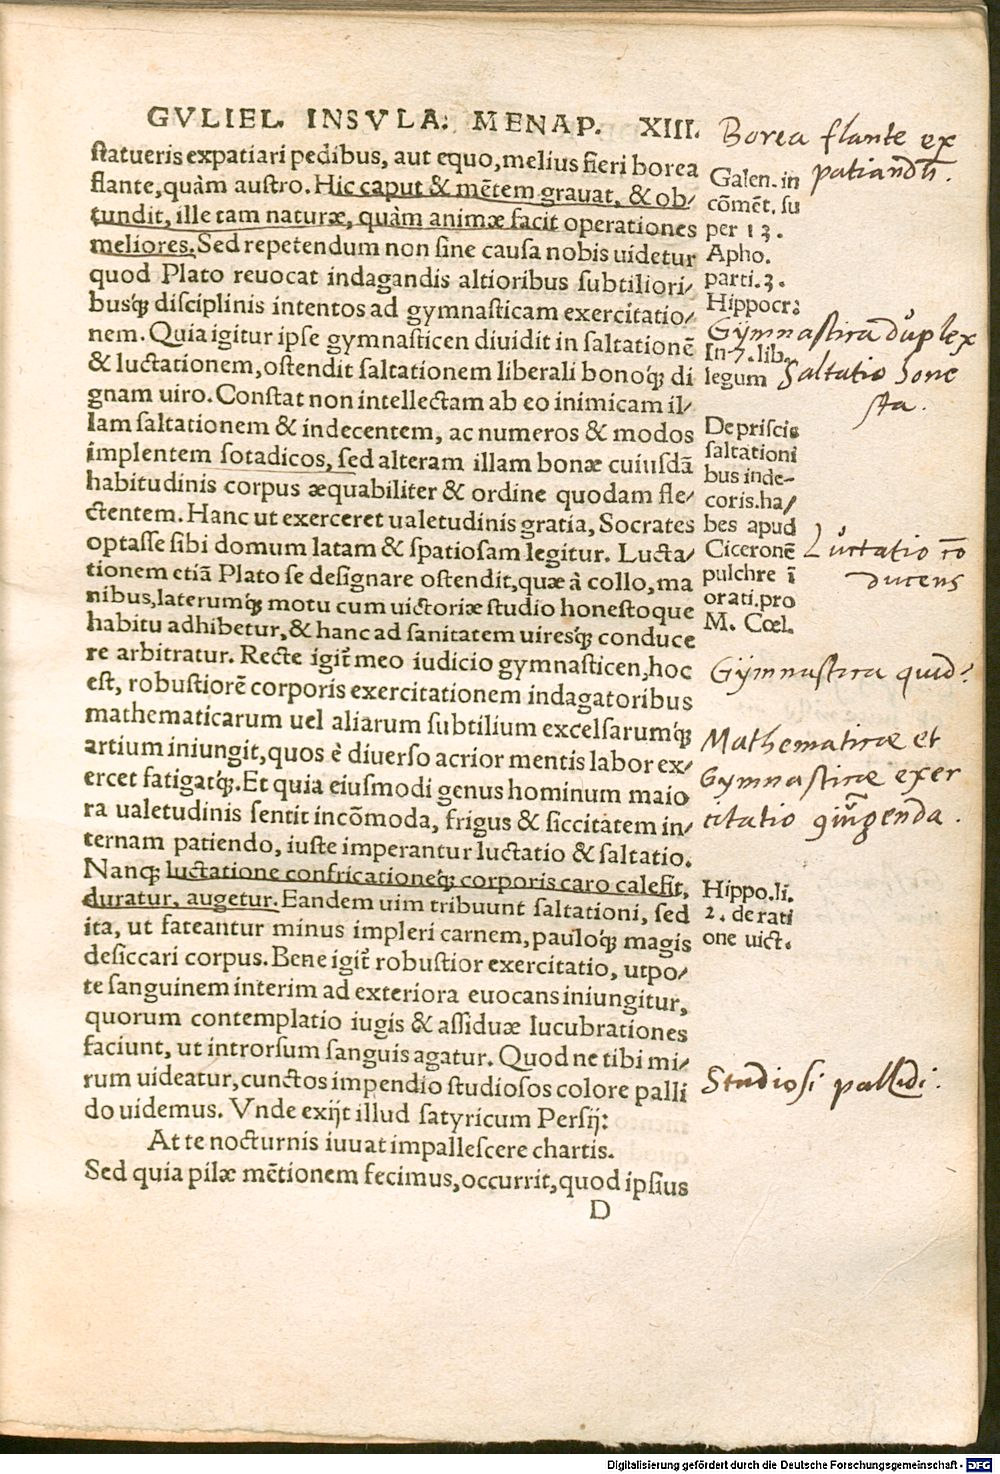 GVLIEL. INSVLA: MENAP. XIII.
ſtatueris expatiari pedibus, aut equo, melius fieri borea
flante, quàm auſtro. Hic caput & mẽtem grauat, & ob/
tundit, ille tam naturæ, quàm animæ facit operationes
meliores. Sed repetendum non ſine cauſa nobis uidetur
quod Plato reuocat indagandis altioribus ſubtiliori/
busq́ꝫ diſciplinis intentos ad gymnaſticam exercitatio/
nem. Quia igitur ipſe gymnaſticen diuidit in ſaltationẽ
& luctationem, oſtendit ſaltationem liberali bonoq́ꝫ di
gnam uiro. Conſtat non intellectam ab eo inimicam il/
lam ſaltationem & indecentem, ac numeros & modos
implentem ſotadicos, ſed alteram illam bonæ cuiuſdã
habitudinis corpus æquabiliter & ordine quodam fle/
ctentem. Hanc ut exerceret ualetudinis gratia, Socrates
optaſſe ſibi domum latam & ſpatioſam legitur. Lucta/
tionem etiã Plato ſe deſignare oſtendit, quæ à collo, ma
nibus, laterumq́ꝫ motu cum uictoriæ ſtudio honeſtoque
habitu adhibetur, & hanc ad ſanitatem uiresq́ꝫ conduce
re arbitratur. Recte igit̃ meo iudicio gymnaſticen, hoc
eſt, robuſtiorẽ corporis exercitationem indagatoribus
mathematicarum uel aliarum ſubtilium excelſarumq́ꝫ
artium iniungit, quos è diuerſo acrior mentis labor ex/
ercet fatigatq́ꝫ. Et quia eiuſmodi genus hominum maio
ra ualetudinis ſentit incõmoda, frigus & ſiccitatem in/
ternam patiendo, iuſte imperantur luctatio & ſaltatio.
Nanqꝫ luctatione confricationeq́ꝫ corporis caro calefit,
duratur, augetur. Eandem uim tribuunt ſaltationi, ſed
ita, ut fateantur minus impleri carnem, pauloq́ꝫ magis
deſiccari corpus. Bene igit̃ robuſtior exercitatio, utpo/
te ſanguinem interim ad exteriora euocans iniungitur,
quorum contemplatio iugis & aſſiduæ lucubrationes
faciunt, ut introrſum ſanguis agatur. Quod ne tibi mi/
rum uideatur, cunctos impendio ſtudioſos colore palli
do uidemus. Vnde exijt illud ſatyricum Perſij:
At te nocturnis iuuat impalleſcere chartis.
Sed quia pilæ mẽtionem fecimus, occurrit, quod ipſius
D
Borea flante ex
patiandũ.
Galen. in
cõmẽt. ſu
per 13.
Apho.
parti. 3.
Hippocr:
Gymnastica duplex
In 7. lib.
legum
Saltatio hone
sta.
De priſcis
ſaltationi
bus inde-
coris. ha/
bes apud
Ciceronẽ
pulchre ĩ
orati. pro
M. Cœl.
Luctatio cõ
ducens
Gymnastica quid?
Mathematicæ et
Gymnasticæ exer
citatio 9iũgenda.
Hippo. li.
2. de rati
one uict.
Studiosi pallidi.
Digitalisierung gefördert durch die Deutsche Forschungsgemeinschaft - DFG